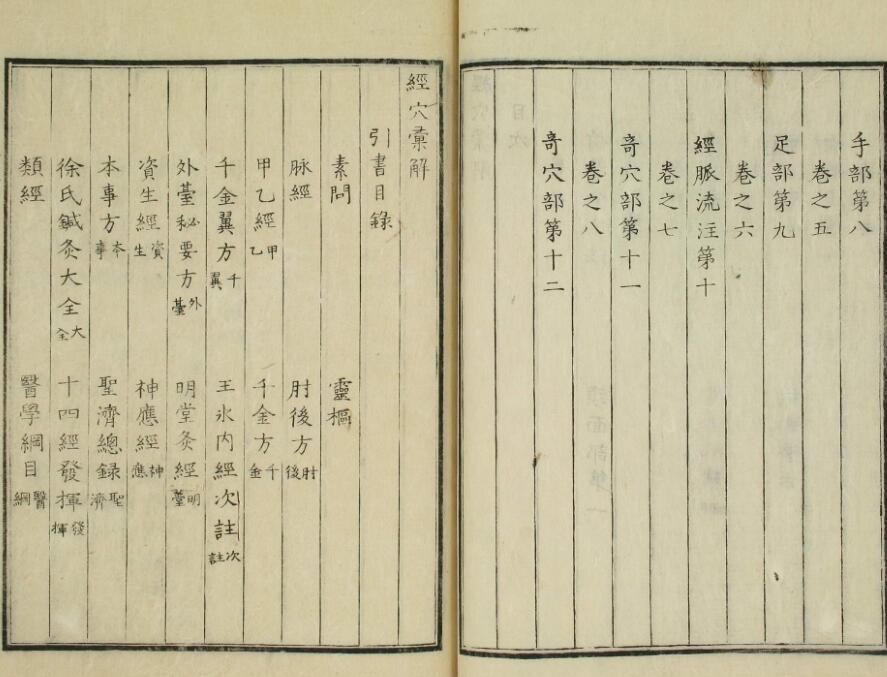 手部第八
卷之五
足部第九
卷之六
經脈流注第十
卷之七
奇穴部第十一
卷之八
奇穴部第十二
經穴彙解
引書目錄
素問 靈樞
脉經 肘後方 肘後
甲乙經 甲乙 千金方 千金
千金翼方 千翼 王氷內經次註 次註
外臺秘要方 外臺 明堂灸經 明
資生經 資生 神應經 神應
本事方 本事 聖濟總錄 聖濟
徐氏鍼灸大全 大全 十四經發揮 發揮
類經 醫學綱目 醫綱